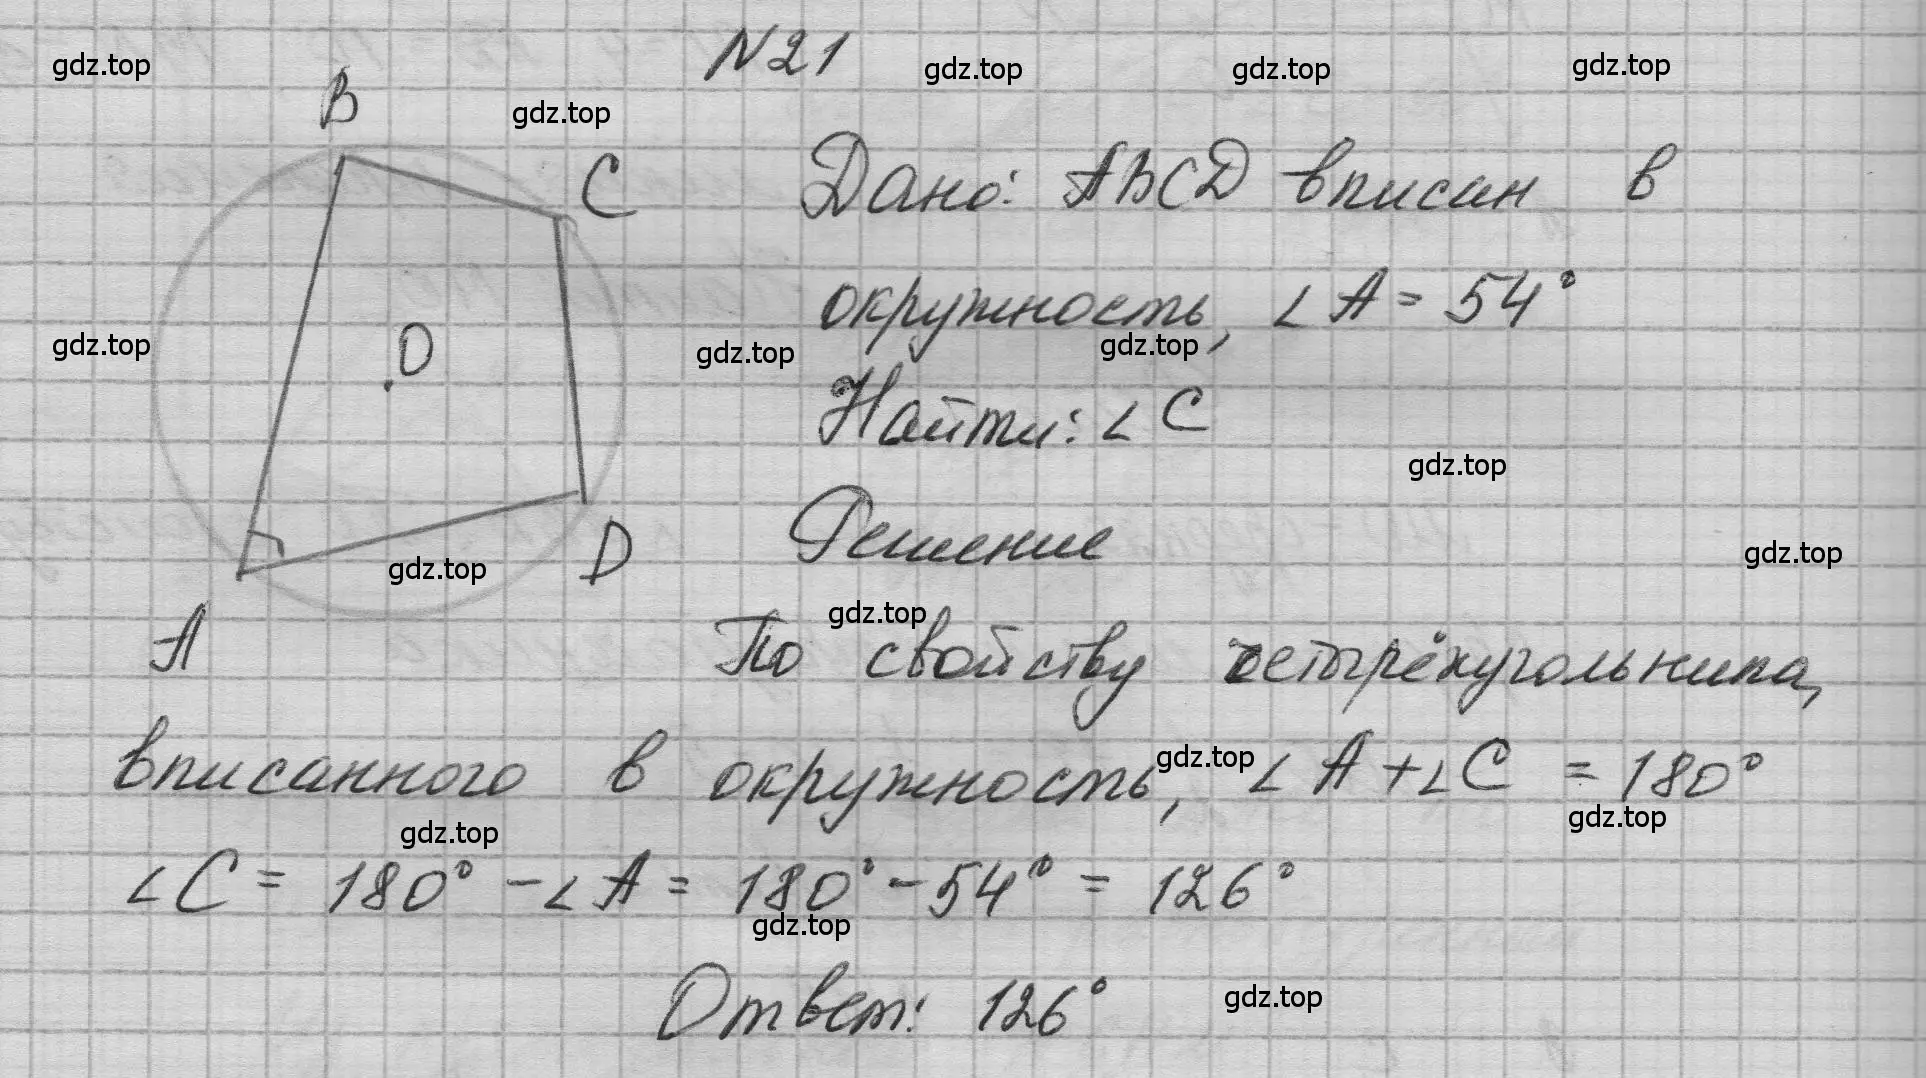 №21
gdz.top
gdz.top
gdz.top
gdz.top
gdz.top
B
C
Дано: ABCD вписан в
окружность, ∠A = 54°
O
gdz.top
gdz.top
gdz.top
Найти: ∠C
gdz.top
Решение
D
gdz.top
gdz.top
gdz.top
A
По свойству четырёхугольника,
вписанного в окружность, ∠A + ∠C = 180°
gdz.top
gdz.top
gdz.top
∠C = 180° - ∠A = 180° - 54° = 126°
gdz.top
Ответ: 126°
gdz.top